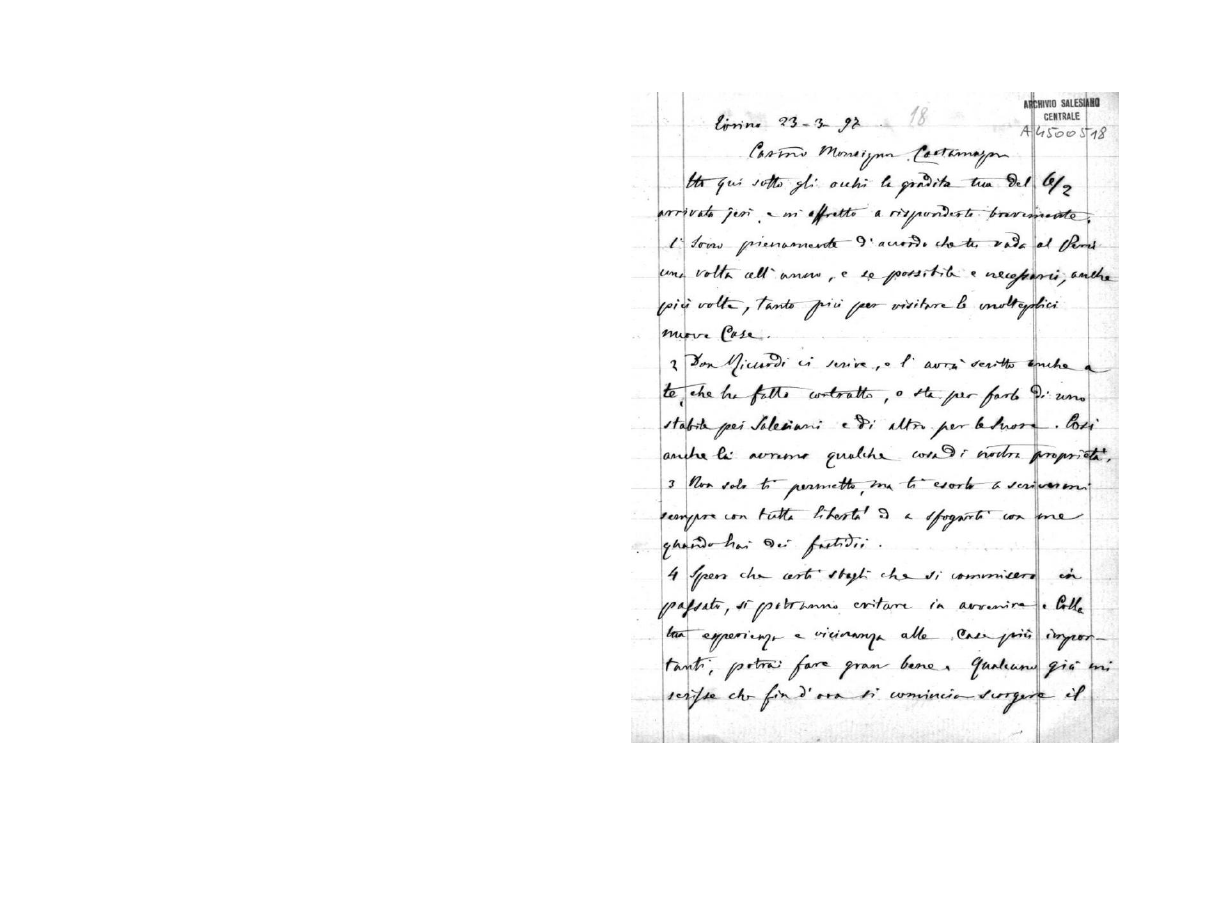 ARCHIVIO SALESIANO
CENTRALE
A4500518
18
Torino 23-3-97
Carmo Monsignor Costamagna
Ho qui sotto gli occhi la gradita tua del 6/2
arrivata jeri, e mi affretto a risponderti brevemente.
1° Sono pienamente d'accordo che tu vada al Perù
una volta all'anno, e se possibile e necessario, anche
più volte, tanto più per visitare le molteplici
nuove Case.
2 Don Riccardi ci scrive, e l'avrà scritto anche a
te, che ha fatto contratto, o sta per farlo di uno
stabile pei Salesiani e di altro per le Suore. Così
anche là avremo qualche cosa di nostra proprietà.
3 Non solo ti permetto, ma ti esorto a scrivermi
sempre con tutta libertà ed a sfogarti con me
quando hai dei fastidii.
4 Spero che certi sbagli che si commisero in
passato, si potranno evitare in avvenire. Colla
tua esperienza e vicinanza alle Case più impor-
tanti, potrai fare gran bene. Qualcuno già mi
scrisse che fin d'ora si comincia scorgere il